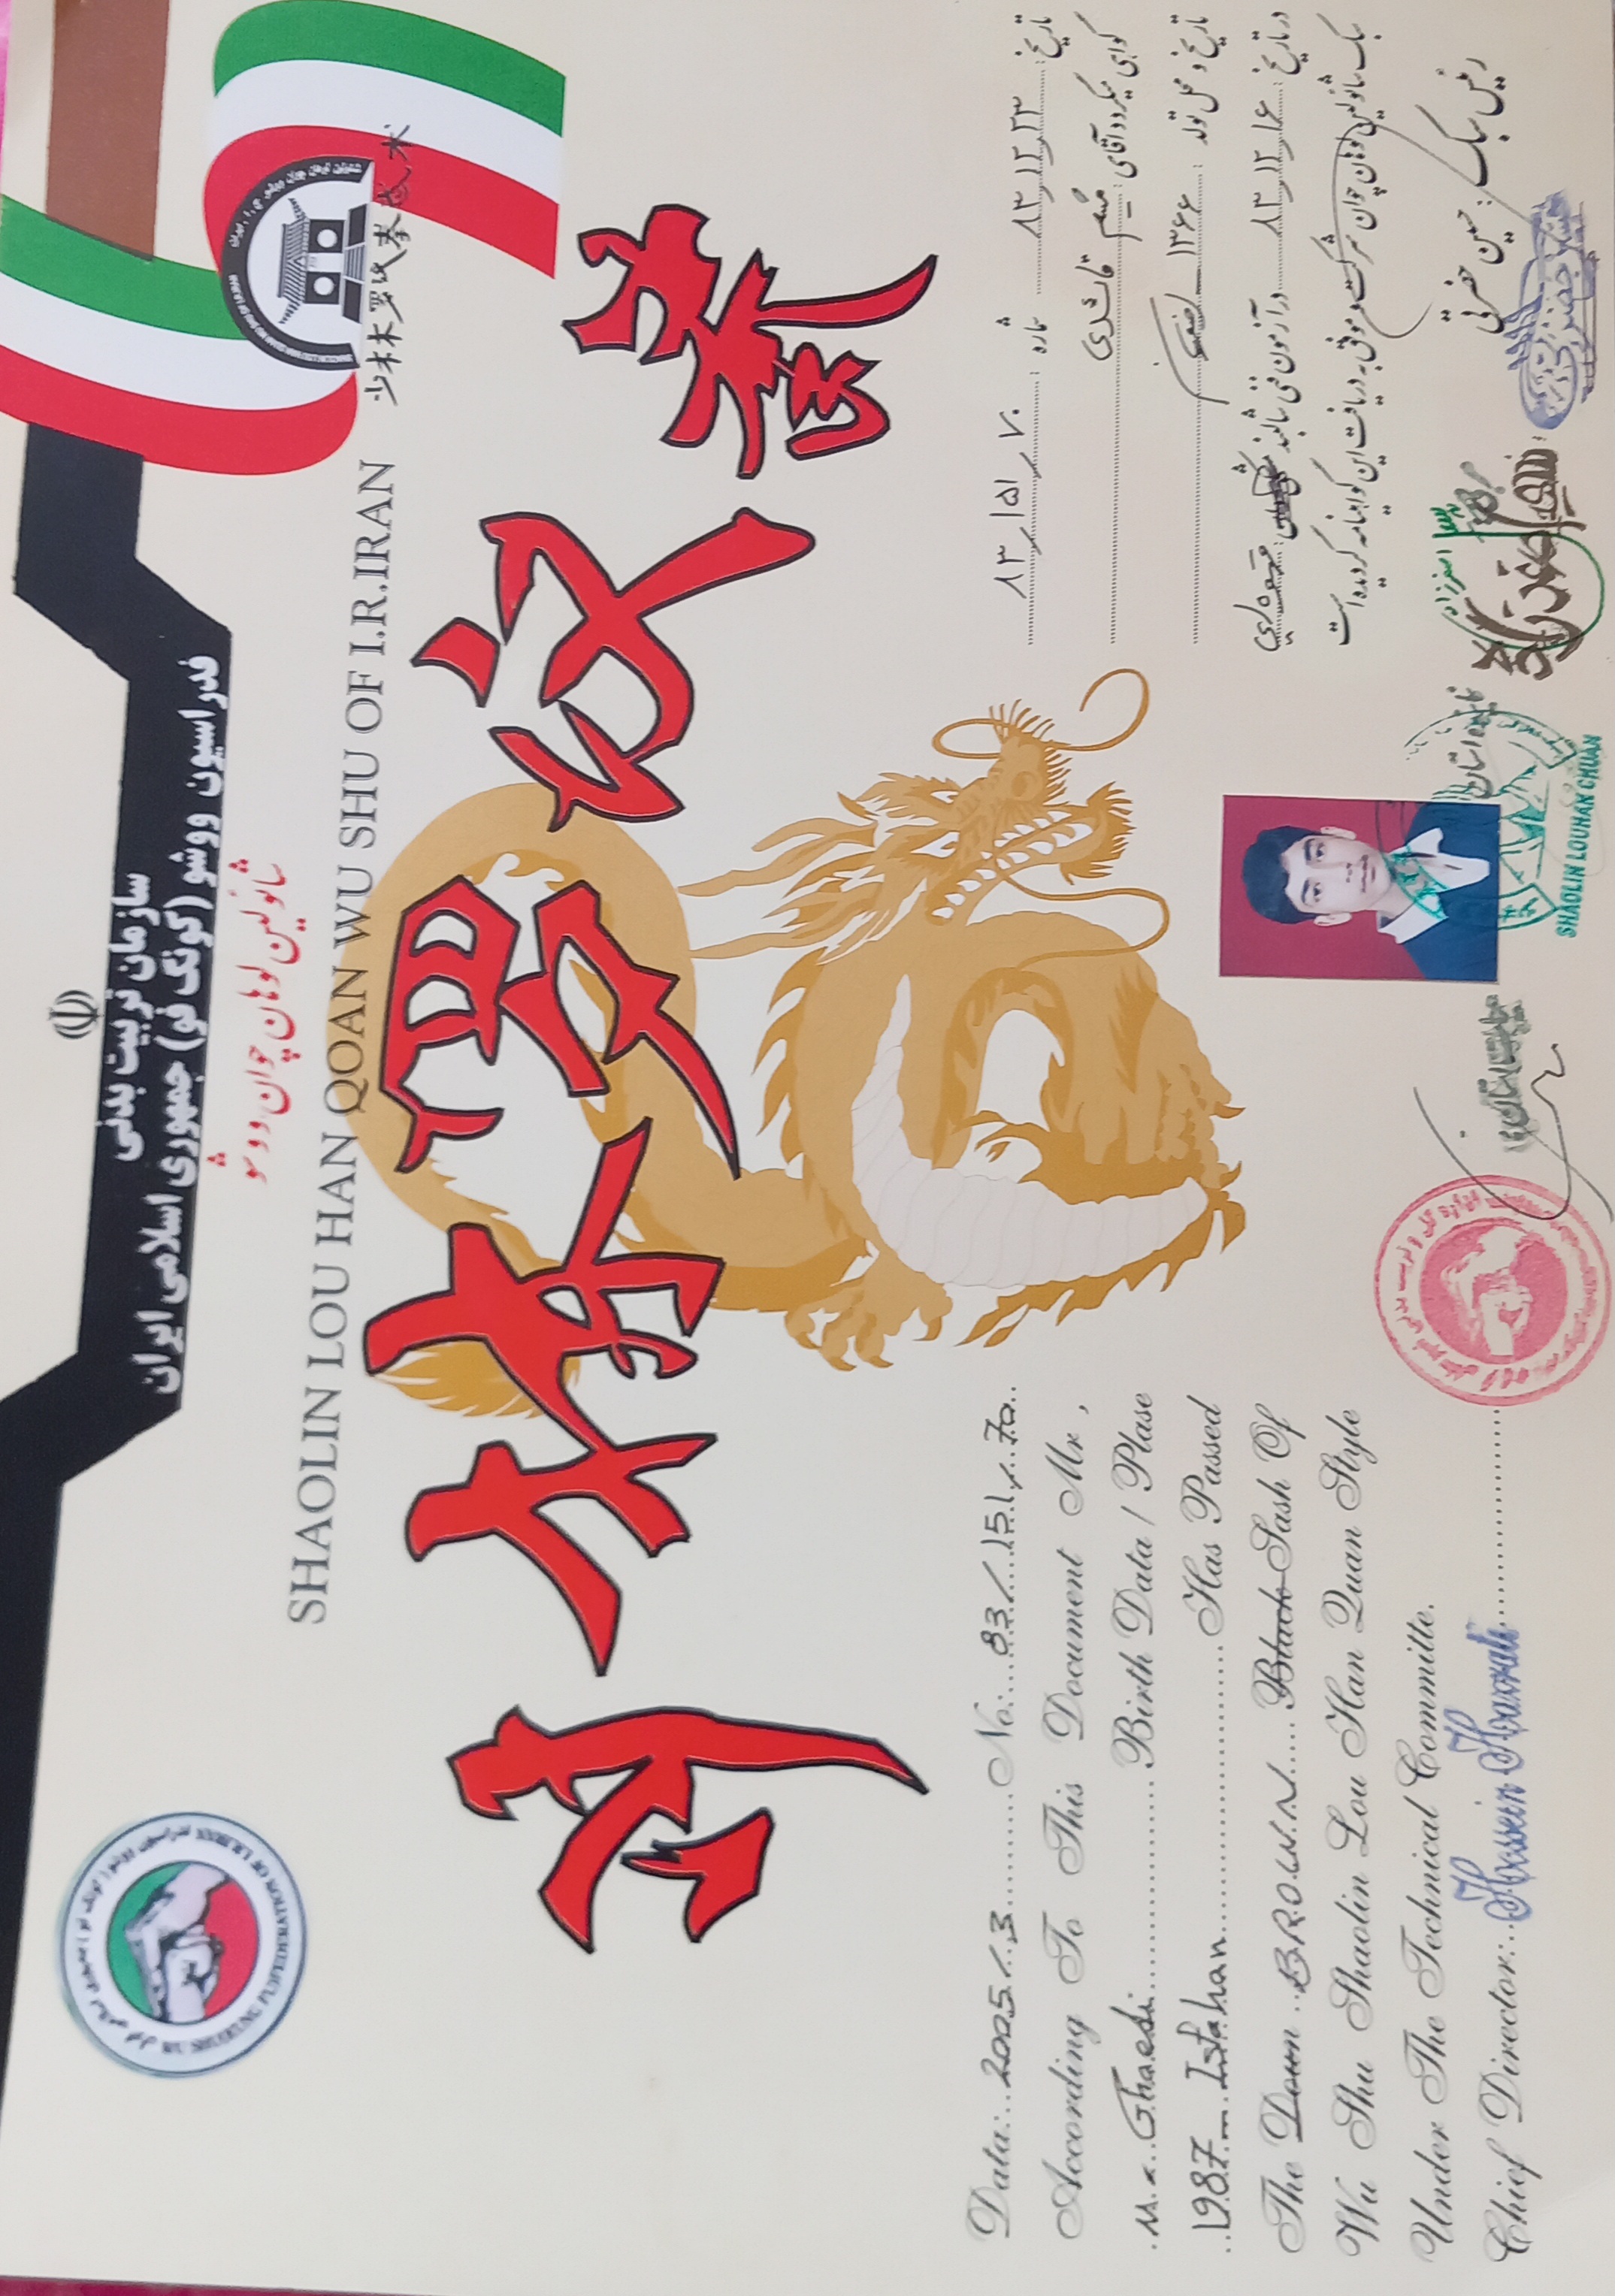 سازمان تربیت بدنی
فدراسیون ووشو (کونگ فو) جمهوری اسلامی ایران
شائولین لوهان چوان ووشو
SHAOLIN LOU HAN QOAN WU SHU OF I.R.IRAN
少林罗汉拳
Data:..2005/.3........No:...83/...151/..70..
According To This Document Mr,
M...Ghaedi............ Birth Data / Plase
1987 - Isfahan............ Has Passed
The Down ..BROWN.... Black Sash Of
Wu Shu Shaolin Lou Han Quan Style
Under The Technical Committe.
Chief Director:..Hossein Hazrati............
تاریخ: ۸۳/۱۲/۲۳ شماره: ۸۳/۱۵۱/۷۰
گواهی میگردد آقای: میثم قائدی
تاریخ و محل تولد: ۱۳۶۶ - اصفهان
در تاریخ: ۸۳/۱۲/۶ در آزمون فنی شالبند مشکی قهوه‌ای
سبک شائولین لوهان چوان شرکت و موفق به دریافت این گواهینامه گردیده است
رئیس سبک: حسین حضرتی
نماینده استان
SHAOLIN LOUHAN CHUAN